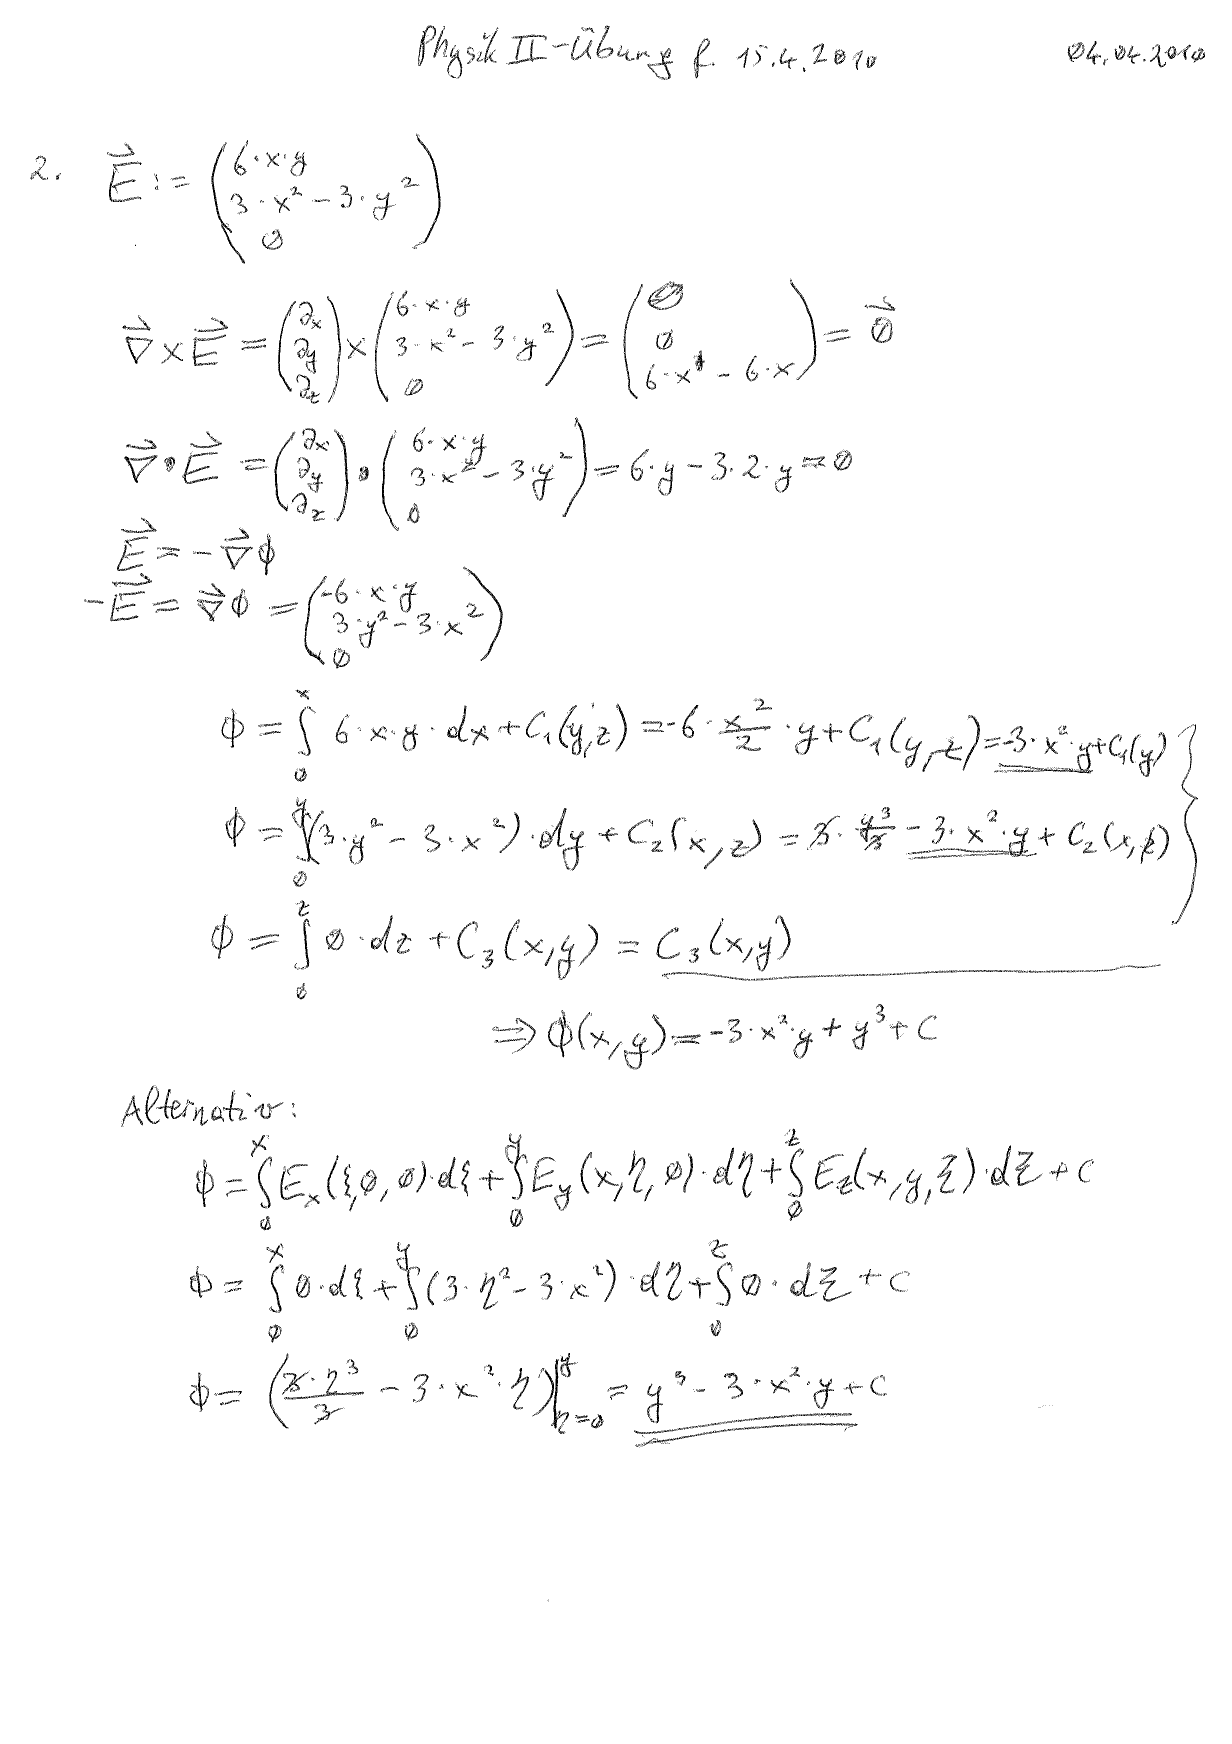 Physik II-Übung f. 15.4.2010 04.04.2010
2. E⃗ := (6·x·y, 3·x²-3·y², 0)
∇⃗×E⃗ = (∂x, ∂y, ∂z) × (6·x·y, 3·x²-3·y², 0) = (0, 0, 6·x-6·x) = 0⃗
∇⃗•E⃗ = (∂x, ∂y, ∂z) • (6·x·y, 3·x²-3·y², 0) = 6·y-3·2·y=0
E⃗ = -∇⃗ϕ
-E⃗ = ∇⃗ϕ = (-6·x·y, 3·y²-3·x², 0)
ϕ = ∫₀ˣ 6·x·y·dx+C₁(y,z) = -6·x²/2·y+C₁(y,z)=-3·x²·y+C₁(y)
ϕ = ∫₀ʸ(3·y²-3·x²)·dy+C₂(x,z) = 3·y³/3-3·x²·y+C₂(x,z)
ϕ = ∫₀ᶻ 0·dz+C₃(x,y) = C₃(x,y)
⇒ ϕ(x,y)=-3·x²·y+y³+C
Alternativ:
ϕ = ∫₀ˣ Eₓ(ξ,0,0)·dξ+∫₀ʸ E_y(x,η,0)·dη+∫₀ᶻ E_z(x,y,Z)·dZ+C
ϕ = ∫₀ˣ 0·dξ+∫₀ʸ(3·η²-3·x²)·dη+∫₀ᶻ 0·dZ+C
ϕ = (3·η³/3-3·x²·η)|_{η=0}^y = y³-3·x²·y+C